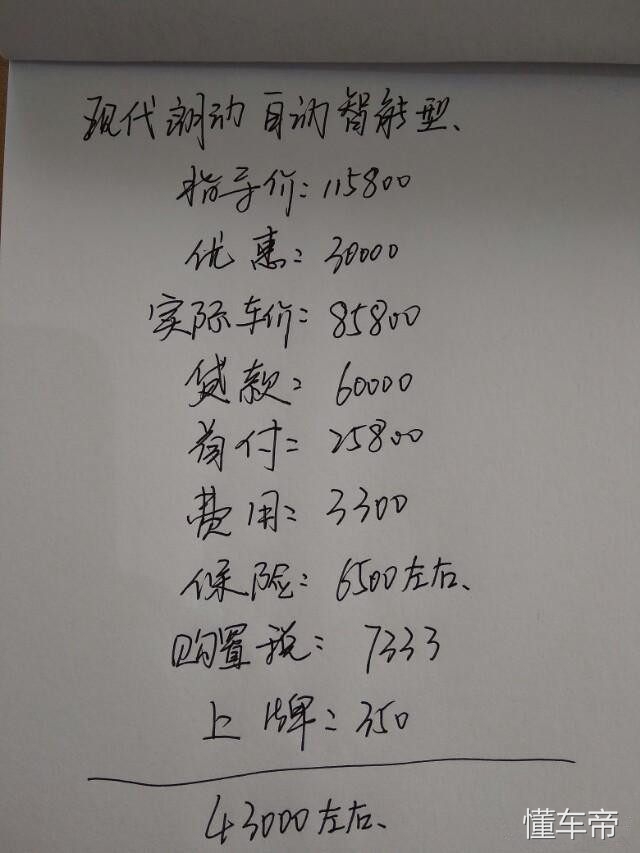 现代朗动 自动智能型、
指导价：115800
优惠：30000
实际车价：85800
贷款：60000
首付：25800
费用：3300
保险：6500左右、
购置税：7333
上牌：350
43000左右、
懂车帝